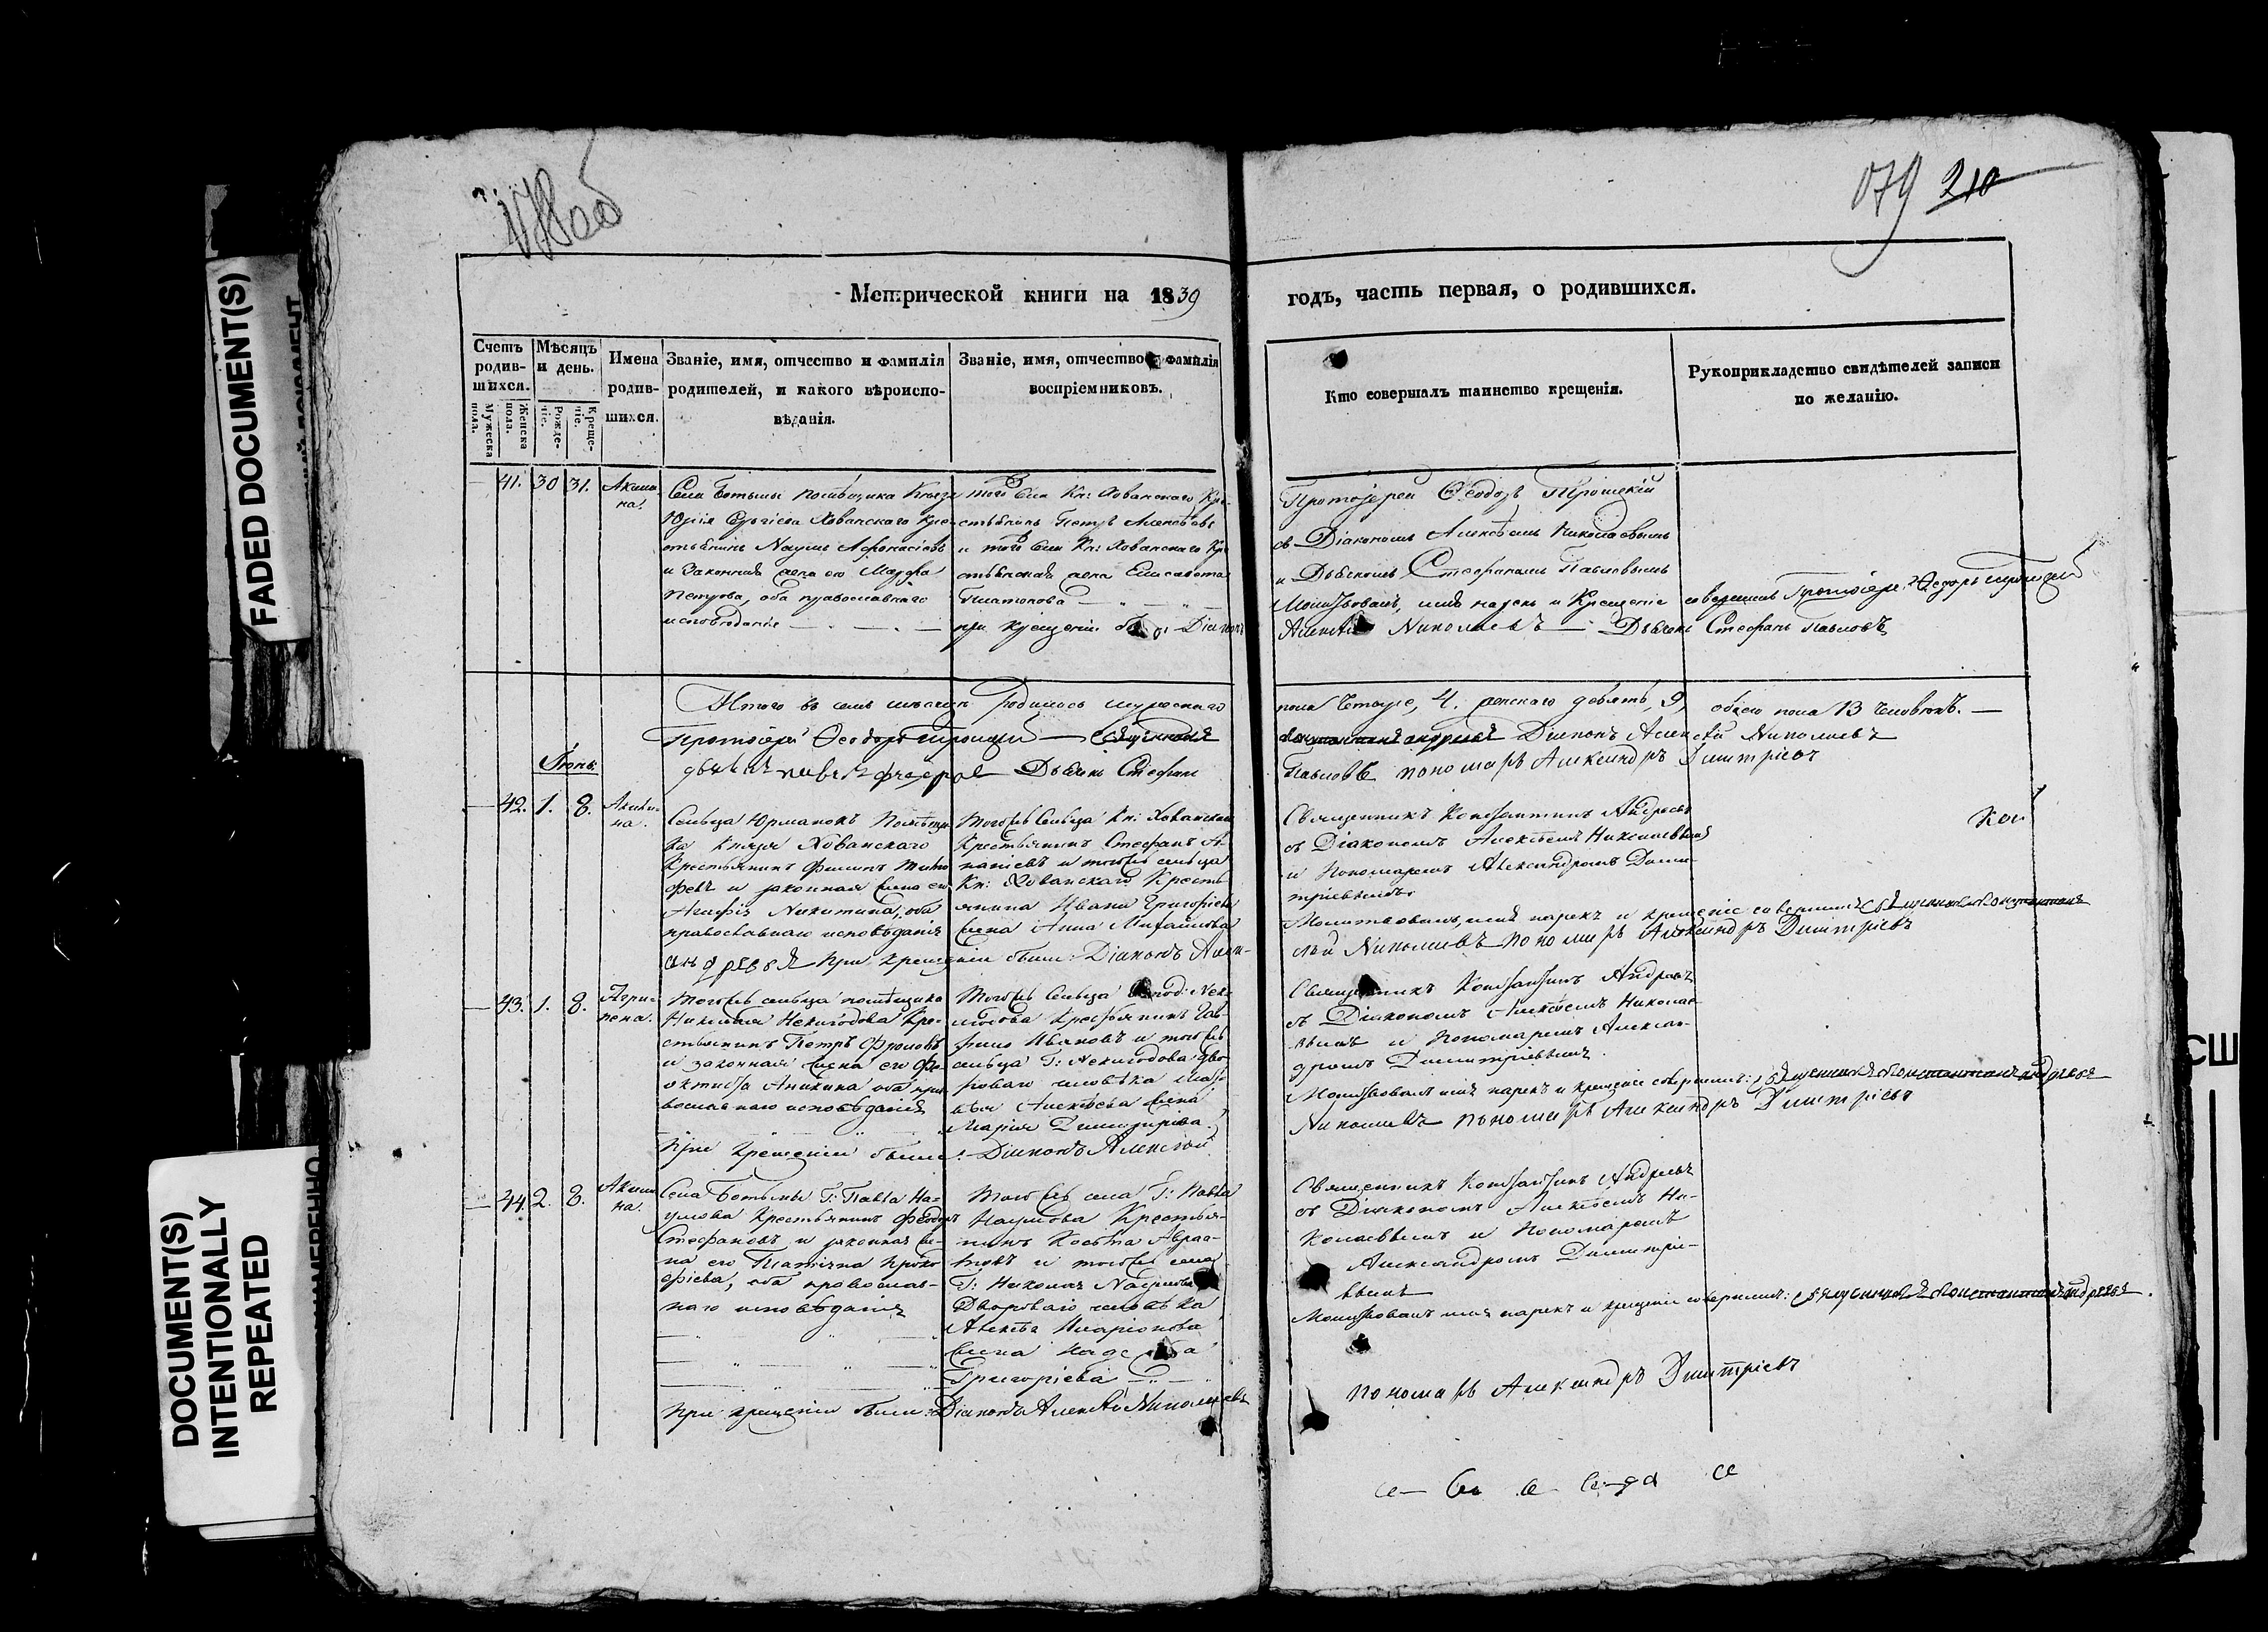 178об
079 210
Метрической книги на 1839
годъ, часть первая, о родившихся.
Счетъ родив-шихся.
Мужеска пола.
Женска пола.
Мѣсяцъ и день.
Рожде-ніе.
Креще-ніе.
Имена родив-шихся.
Званіе, имя, отчество и фамилія
родителей, и какого вѣроиспо-
вѣданія.
Званіе, имя, отчество и фамилія
воспріемниковъ.
Кто совершалъ таинство крещенія.
Рукоприкладство свидѣтелей записи
по желанію.
41. 30 31. Акили-
на.
Села Ботьмы помѣщика Князя
Юрія Сергіева Хованскаго Кре-
стьянинъ Наумъ Афонасіевъ
и Законная жена его Марфа
Петрова, оба православнаго
исповѣданія
того села Кн: Хованскаго Кре-
стьянинъ Петръ Алексѣевъ
и того села Кн: Хованскаго Кре
стьянская жена Елисавета
Платонова
при крещеніи были Діаконъ
Протоіерей Ѳеодоръ Троицкій
съ Діакономъ Алексѣемъ Николаевымъ
и Дьячкомъ Стефаномъ Павловымъ
Молитвовалъ, имя нарекъ и Крещеніе совершалъ Протоіерей Ѳедоръ Троицкій
Алексѣй Николаевъ — Дьячекъ Стефанъ Павловъ
Итого въ семъ мѣсяцѣ Родилось мужескаго
пола Четыре, 4. женскаго девять, 9, обоего пола 13 человѣкъ.
Протоіерей Ѳеодоръ Троицкій — священникъ
константинъ андреевъ Діаконъ Алексѣй Николаевъ
Дьячекъ Стефанъ
Павловъ пономарь Александръ Димитріевъ
Іюнь
42. 1. 8. Акили-
на.
Сельца Юрманокъ Помѣщи
ка Князя Хованскаго
Крестьянинъ Филипъ Тимо
феевъ и законная жена его
Агафія Никитина, оба
православнаго исповѣданія
андреевъ При крещеніи были: Діаконъ Алек-
Тогожъ Сельца Кн: Хованскаго
Крестьянинъ Стефанъ А-
наніевъ и тогожъ сельца
Кн: Хованскаго Кресть
янина Ивана Григоріева
жена Анна Михайлова
Священникъ Константинъ Андреевъ
съ Діакономъ Алексѣемъ Николаевымъ
и Пономаремъ Александромъ Дими-
тріевымъ.
Кон
Молитвовалъ, имя нарекъ и крещеніе совершилъ священникъ константинъ
сѣй Николаевъ пономарь Александръ Димитріевъ
43. 1. 8. Агри-
пена.
Тогожъ сельца помѣщика
Николая Неклюдова Кре-
стьянинъ Петръ Фроловъ
и законная жена его Фе-
октиста Аникина оба пра
вославнаго исповѣданія
При крещеніи были: Діаконъ Алексѣй
Тогожъ Сельца Господ: Нек-
людова Крестьянинъ Гав-
рило Ивановъ и тогожъ
сельца Г: Неклюдова Дво-
роваго человѣка Мат-
вѣя Алексѣева жена
Марья Димитріева.
Священникъ Константинъ Андреевъ
съ Діакономъ Алексѣемъ Николае-
вымъ и Пономаремъ Алексан-
дромъ Димитріевымъ.
Молитвовалъ имя нарекъ и крещеніе совершилъ: священникъ константинъ андреевъ
Николаевъ пономарь Александръ Димитріевъ
44. 2. 8. Акили
на.
Села Ботьмы Г: Павла На-
умова Крестьянинъ Феодоръ
Стефановъ и законная же-
на его Татіана Проко
фіева, оба православ-
наго исповѣданія
При крещеніи были: Діаконъ Алексѣй Николаевъ
Тогожъ села Г: Павла
Наумова Крестья-
нинъ Косьма Авраа-
мовъ и тогожъ села
Г: Николая Наумова
Двороваго человѣка
Алексѣя Иларіонова
жена Надежда
Григоріева
Священникъ Константинъ Андреевъ
съ Діакономъ Алексѣемъ Ни-
колаевымъ и Пономаремъ
Александромъ Димитріе-
вымъ
Молитвовалъ имя нарекъ и крещеніе совершилъ: священникъ константинъ андреевъ.
пономарь Александръ Димитріевъ
FADED DOCUMENT(S)
DOCUMENT(S)
INTENTIONALLY
REPEATED